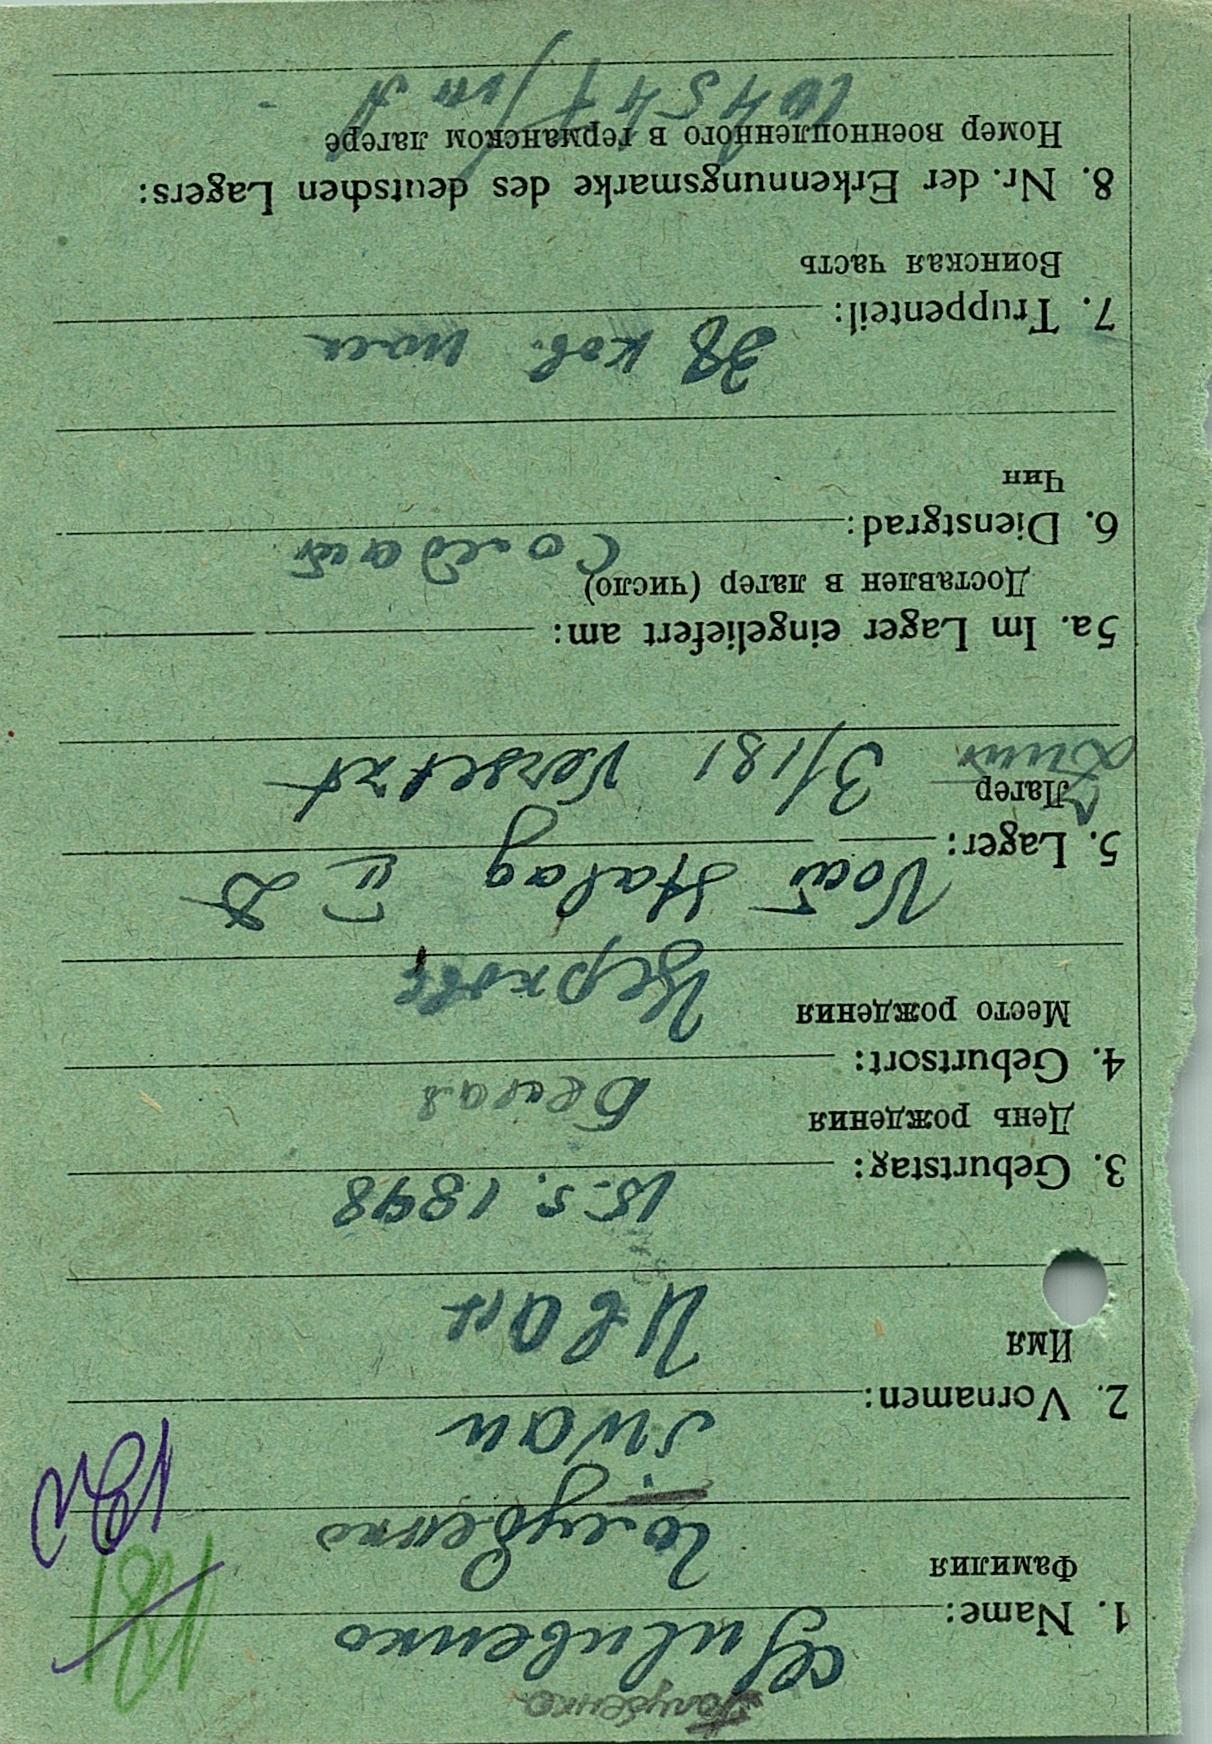 Голубенко
Gulubenko
1. Name:
Фамилия
Голубенко
Iwan
2. Vornamen:
Имя
Иван
15.5.1898
3. Geburtstag:
День рождения
Белая
4. Geburtsort:
Место рождения
Церковь
Vom Stalag II D
5. Lager:
Лагер
3/181 Versetzt
5a. Im Lager eingeliefert am:
Доставлен в лагер (число)
Солдат
6. Dienstgrad:
Чин
38 кав.
7. Truppenteil:
Воинская часть
8. Nr. der Erkennungsmarke des deutschen Lagers:
Номер военнопленного в германском лагере
181
182